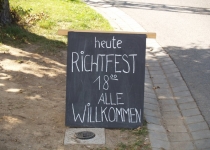 heute
RICHTFEST
18⁰⁰
ALLE
WILLKOMMEN